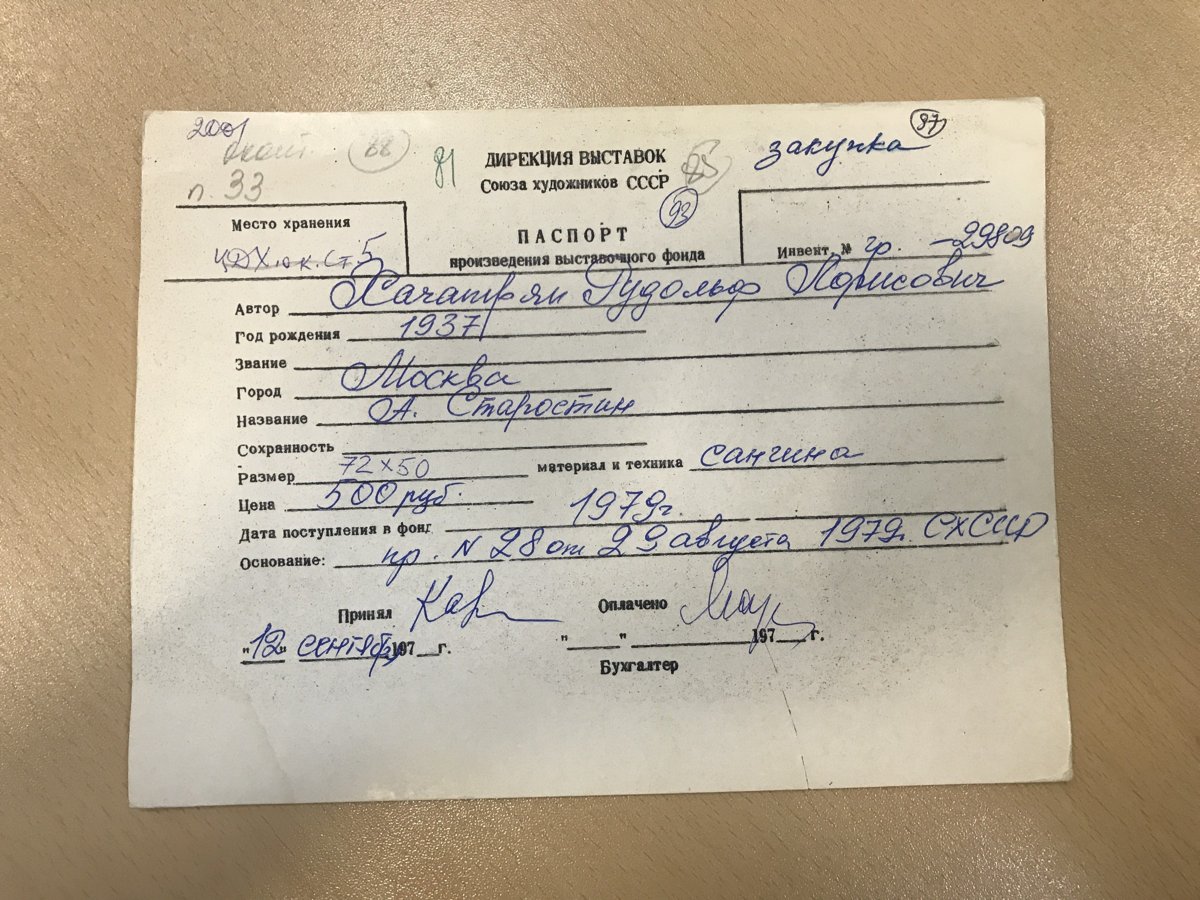 2001
97
закупка
88
81
ДИРЕКЦИЯ ВЫСТАВОК
Союза художников СССР
85
п. 33
93
Место хранения
ПАСПОРТ
произведения выставочного фонда
Инвент. № гр. -29809
ЦДХ. ст. 5
Автор Хачатрян Рудольф Лорисович
Год рождения 1937
Звание
Город Москва
Название А. Старостин
Сохранность
Размер 72×50 материал и техника сангина
Цена 500 руб.
Дата поступления в фонд 1979г.
Основание: пр. N 28 от 29 августа 1979г. СХСССР
Принял Оплачено
"12" сентяб 197 г. " " 197 г.
Бухгалтер